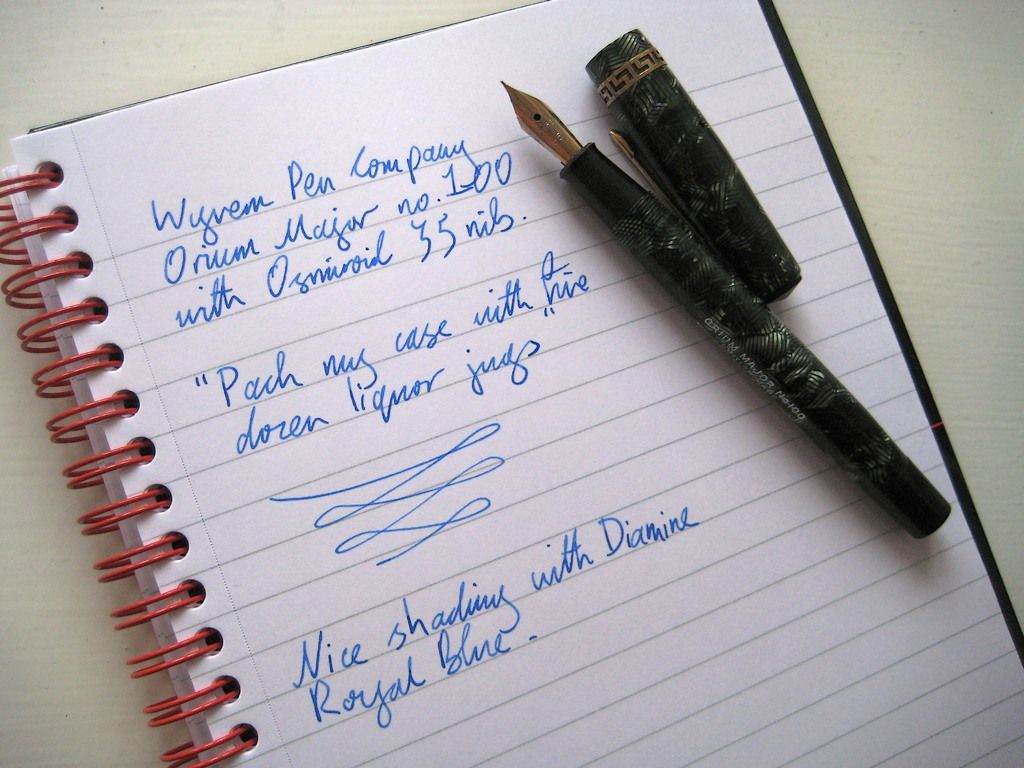 Wyvern Pen Company
Orium Major no. 100
with Osmiroid 35 nib.
"Pack my case with five
dozen liquor jugs"
Nice shading with Diamine
Royal Blue.
ORIUM MAJOR No100